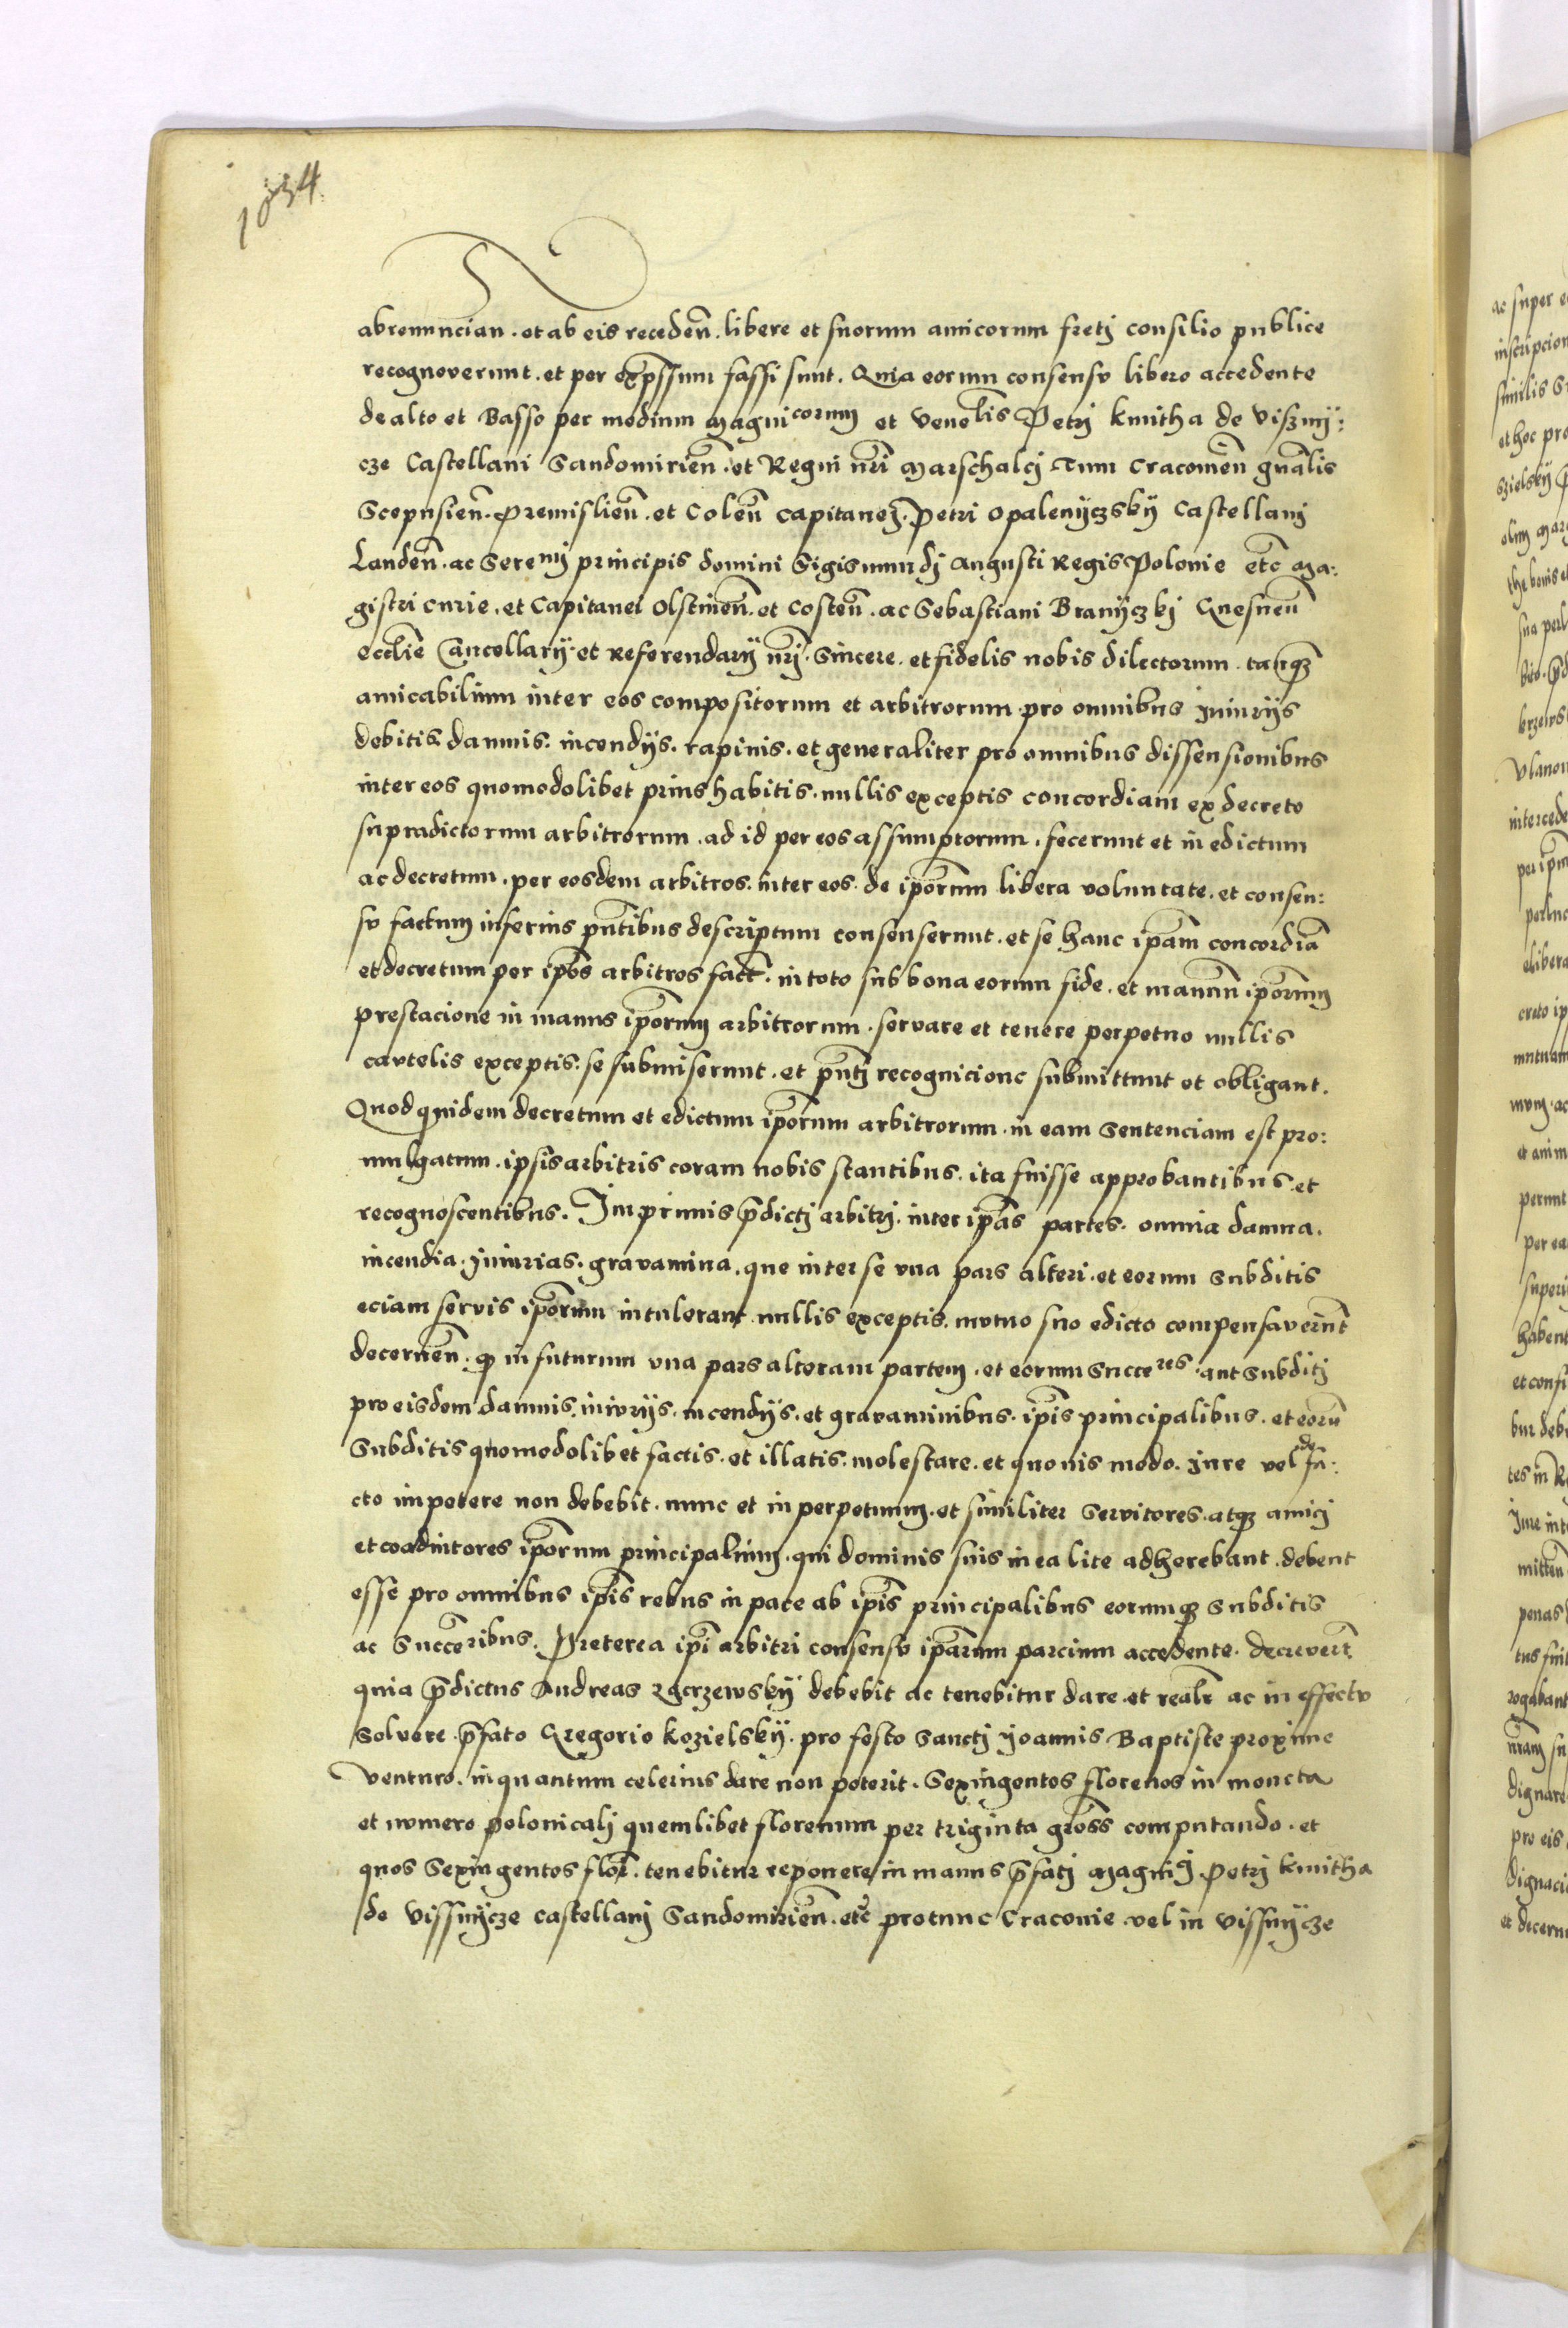 1534
abrenuncian. et ab eis receden̄. libere et suorum amicorum fretj consilio publice
recognoverunt. et per exp̄ssum fassi sunt. Quia eorum consensv libero accedente
de alto et Basso per medium Magnicorum et Venelis Petrj Kmitha de Viszny:
cze Castellani Sandomirien̄. et Regni nr̄i Marschalcj Tum Cracovien̄ gn̄alis
Scepusien̄. Premislien̄. et Colen̄ capitanej. Petri Opalenyczsky Castellanj
Landen̄. ac Serenj principis domini Sigismundj Augusti Regis Polonie etc̄ Ma:
gistri curie. et Capitanei Olstinen̄. et Costen̄. ac Sebastiani Branyczkj Gnesnen̄
eccl̄ie Cancellarÿ et Referendarÿ nr̄j. Sincere. et fidelis nobis dilectorum. tanq̄
amicabilium inter eos compositorum et arbitrorum pro omnibus Iniurÿs
debitis damnis. incendÿs. rapinis. et generaliter pro omnibus dissensionibus
inter eos quomodolibet prius habitis. nullis exceptis concordiam ex decreto
supradictorum arbitrorum. ad id per eos assumptorum. fecerunt et in edictum
ac decretum. per eosdem arbitros. inter eos. de ip̄orum libera voluntate. et consen:
sv factum inferius pn̄tibus descriptum consenserunt. et se hanc ip̄am concordiā
et decretum per ip̄os arbitros fact̄. in toto sub bona eorum fide. et manuum ip̄orum
prestacione in manus ip̄orum arbitrorum. servare et tenere perpetuo nullis
cavtelis exceptis. se submiserunt. et pn̄tj recognicione submittunt et obligant.
Quod quidem decretum et edictum ip̄orum arbitrorum. in eam sentenciam est pro:
mulgatum. ipsis arbitris coram nobis stantibus. ita fuisse approbantibus. et
recognoscentibus. Imprimis p̄dictj arbitrj. inter ip̄as partes. omnia damna.
incendia. Iniurias. gravamina. que inter se vna pars alteri. et eorum Subditis
eciam servis ip̄orum intulerant. nullis exceptis. mvtuo suo edicto compensaverūt
decernen̄. q in futurum vna pars alteram partem. et eorum Succeres. aut Subditj
pro eisdem damnis. inivrÿs. incendÿs. et gravaminibus. ip̄is principalibus. et eorū
Subditis quomodolibet factis. et illatis. molestare. et quouis modo. Iure vel de fa:
cto impetere non debebit. nunc et in perpetuum. et similiter Servitores. atq amicj
et coadiutores ip̄orum principalium. qui dominis suis in ea lite adherebant. debent
esse pro omnibus ip̄is rebus in pace ab ip̄is principalibus eorumq Subditis
ac Succeribus. Preterea ip̄i arbitri consensv ip̄arum parcium accedente. decrevert̄
quia p̄dictus Andreas Zgerzewskÿ debebit ac tenebitur dare. et realr̄ ac in effectv
solvere. p̄fato Gregorio Kozielskÿ. pro festo Sanctj Joannis Baptiste proxime
venturo. inquantum celerius dare non poterit. Sexingentos florenos in moneta
et nvmero polonicalj quemlibet florenum per triginta gross̄ computando. et
quos Sexingentos flor̄. tenebitur reponere in manus p̄fatj Magnicj Petrj Kmitha
de Vissnycze castellanj Sandomirien̄. etc̄ protunc Cracovie vel in Vissnycze